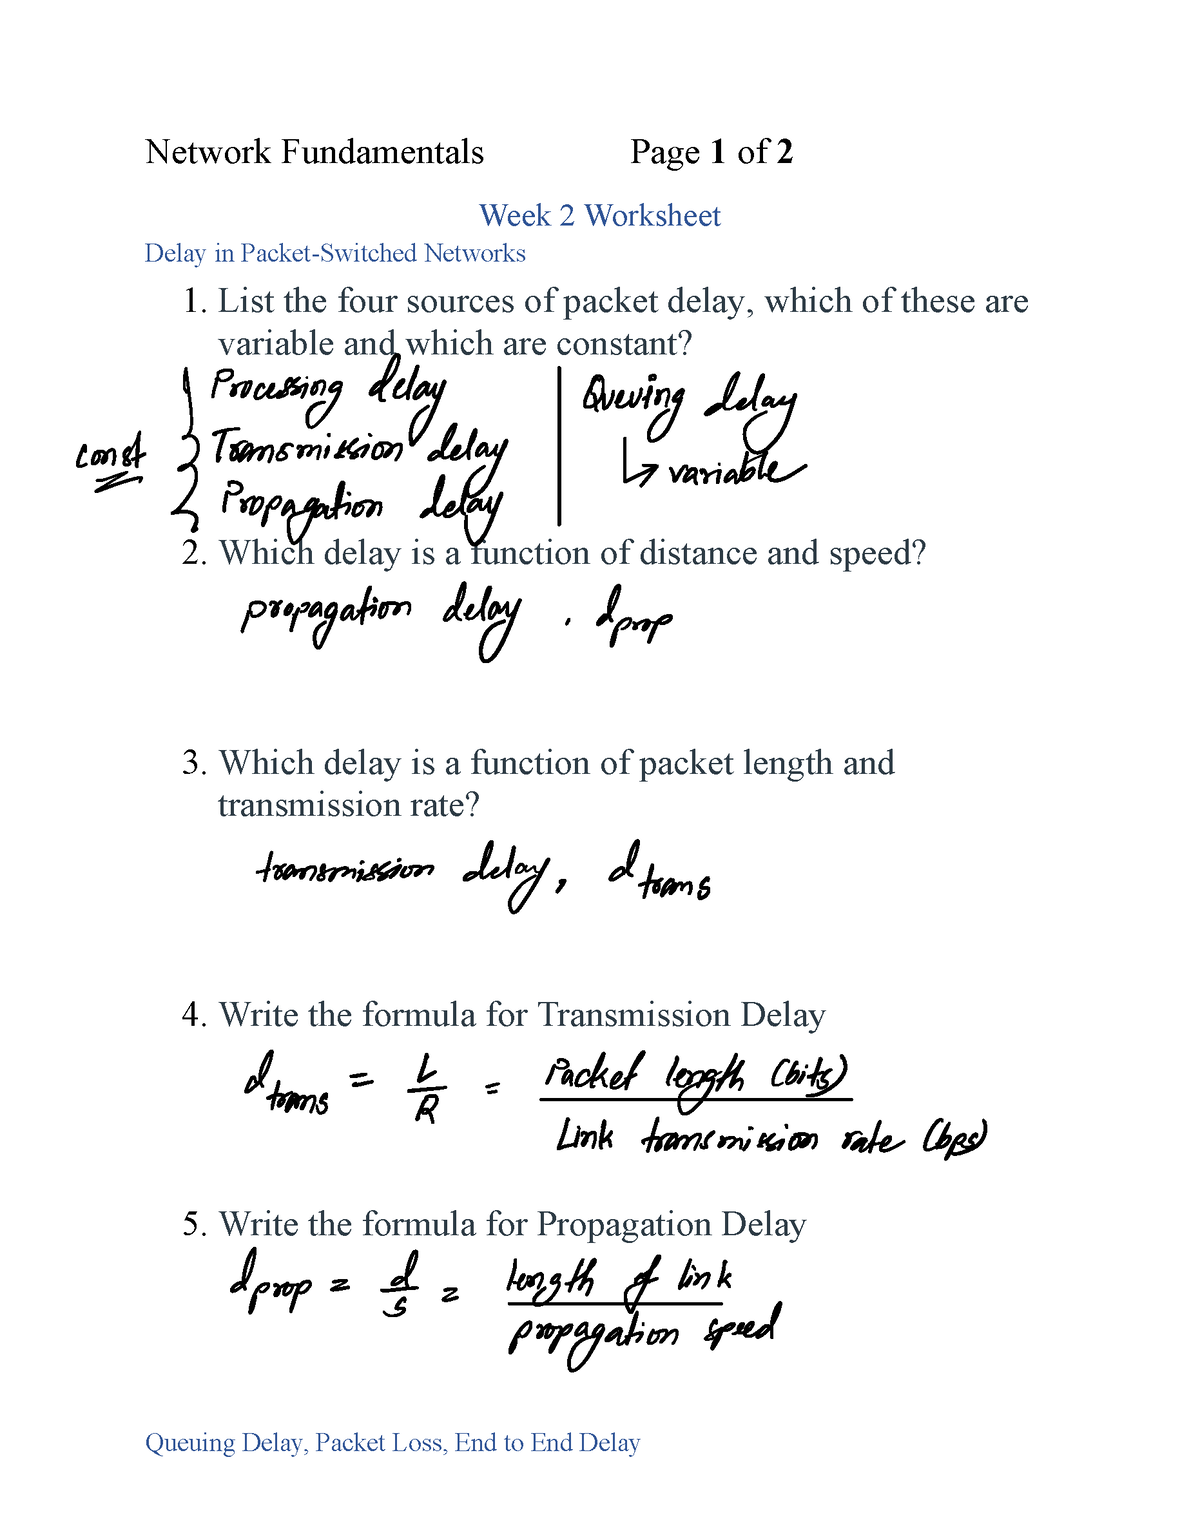 Network Fundamentals Page 1 of 2
Week 2 Worksheet
Delay in Packet-Switched Networks
1. List the four sources of packet delay, which of these are
variable and which are constant?
const
Processing delay
Transmission delay
Propagation delay
Queuing delay
↳ variable
2. Which delay is a function of distance and speed?
propagation delay . dprop
3. Which delay is a function of packet length and
transmission rate?
transmission delay, dtrans
4. Write the formula for Transmission Delay
dtrans = L/R = Packet length (bits)
Link transmission rate (bps)
5. Write the formula for Propagation Delay
dprop = d/s = length of link
propagation speed
Queuing Delay, Packet Loss, End to End Delay